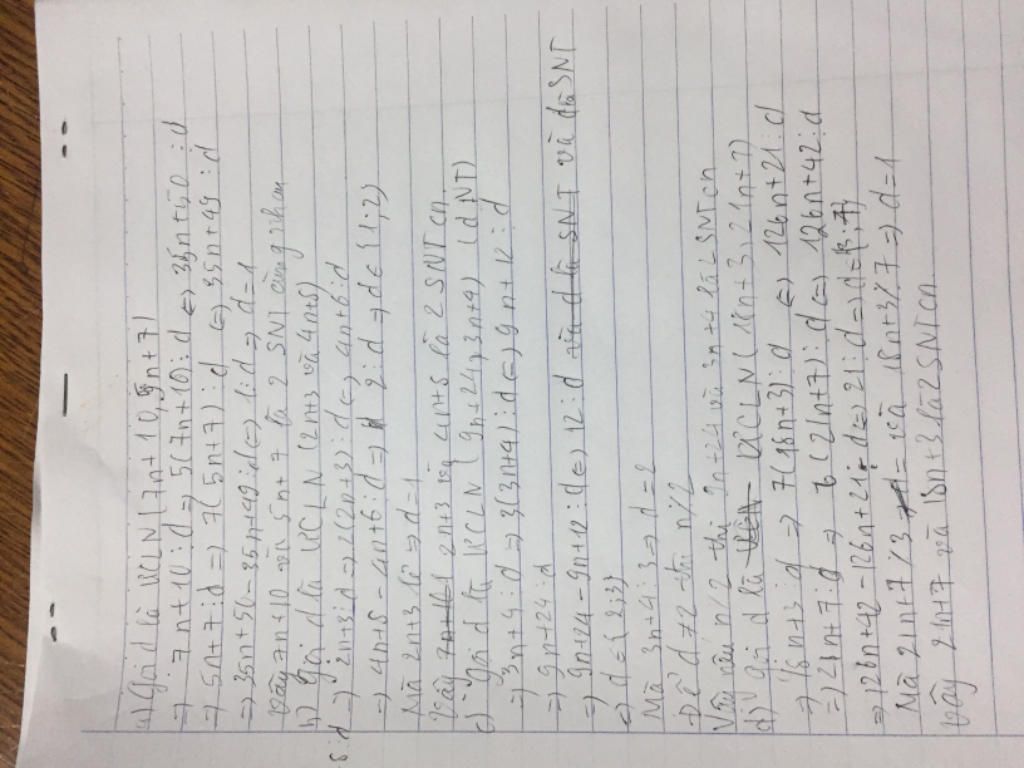 a) Gọi d là ƯCLN (7n+10, 5n+7)
=> 7n+10⋮d => 5(7n+10)⋮d (=) 35n+50⋮d
=> 5n+7⋮d => 7(5n+7)⋮d (=) 35n+49⋮d
=> 35n+50-35n+49⋮d (=) 1⋮d => d=1
Vậy 7n+10 và 5n+7 là 2 SNT cùng nhau
b) Gọi d là ƯCLN (2n+3 và 4n+8)
8⋮d => 2n+3⋮d => 2(2n+3)⋮d (=) 4n+6⋮d
=> 4n+8-4n+6⋮d => 2⋮d => d∈{1;2}
Mà 2n+3 lẻ => d=1
Vậy 2n+3 và 4n+8 là 2 SNTcn
c) Gọi d là ƯCLN (9n+24, 3n+4) (d NT)
=> 3n+4⋮d => 3(3n+4)⋮d (=) 9n+12⋮d
=> 9n+24⋮d
=> 9n+24-9n+12⋮d (=) 12⋮d và d là SNT
=> d∈{2;3}
Mà 3n+4⋮̸3 => d=2
Để d≠2 thì n⋮̸2
Vậy nếu n⋮̸2 thì 9n+24 và 3n+4 là 2SNTcn
d) Gọi d là ƯCLN (18n+3, 21n+7)
=> 18n+3⋮d => 7(18n+3)⋮d (=) 126n+21⋮d
=> 21n+7⋮d => 6(21n+7)⋮d (=) 126n+42⋮d
=> 126n+42-126n+21⋮d (=) 21⋮d => d={3;7}
Mà 21n+7⋮̸3 và 18n+3⋮̸7 => d=1
Vậy 21n+7 và 18n+3 là 2SNTcn